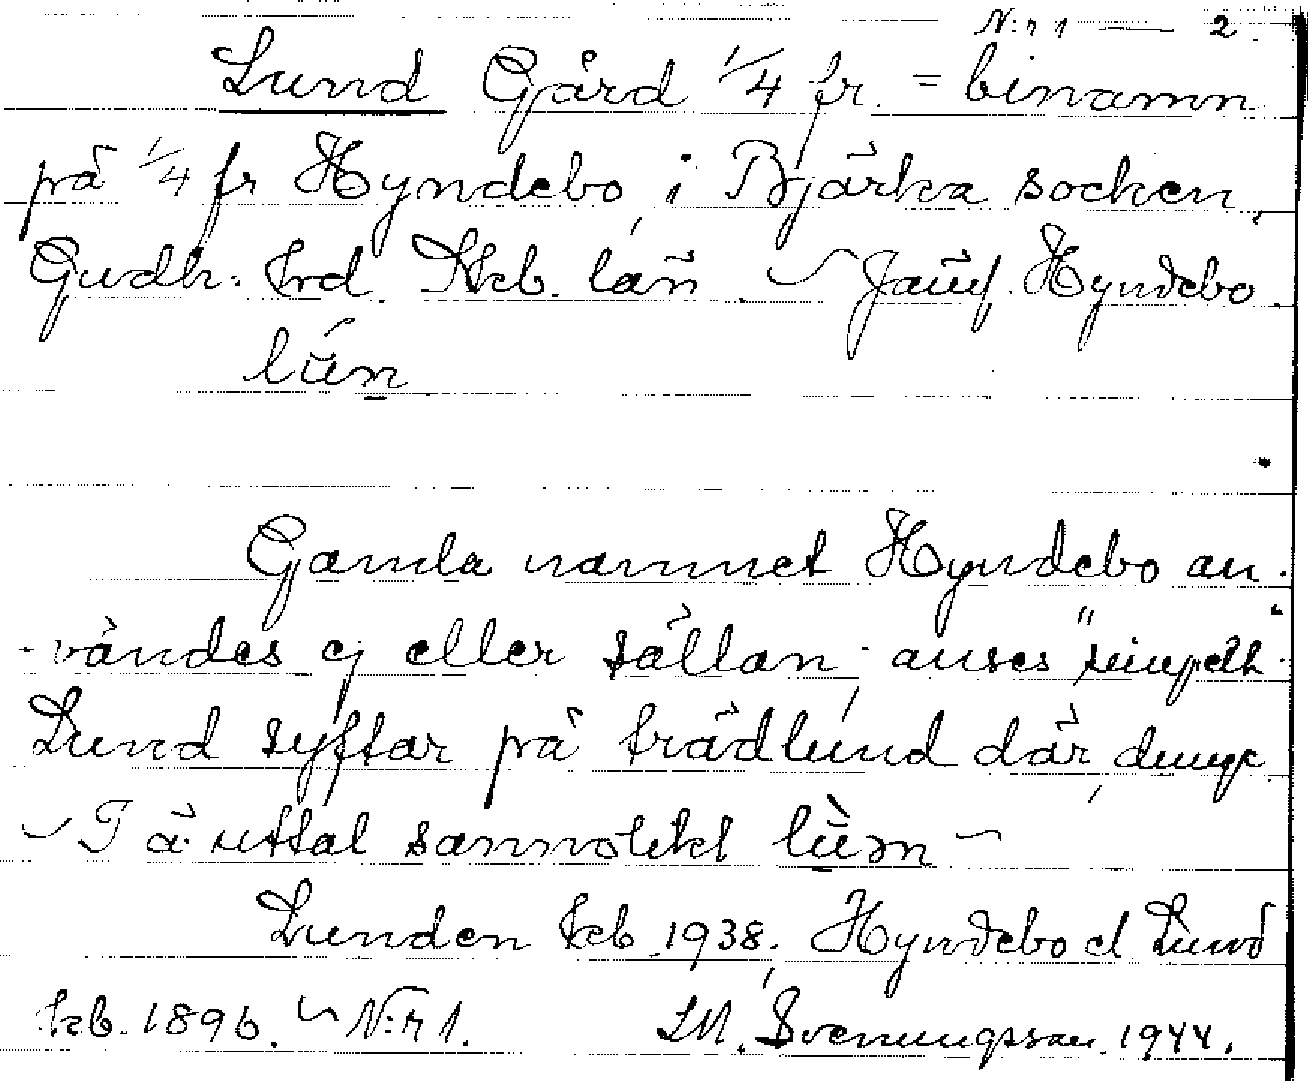 N:r 1 — 2.
Lund Gård 1/4 fr. = binamn
på 1/4 fr Hyndebo, i Bjärka socken,
Gudh. hrd. Skb. län. ~ Jämf. Hyndebo.
lún
Gamla namnet Hyndebo an-
-vändes ej eller sällan; anses "simpelt".
Lund syftar på trädlund där,
~ I ä. uttal sannolikt lùn ~
Lunden kb 1938; Hyndebo el Lund
kb. 1896. ~ N:r 1. S.M. Svenungsson. 1944.